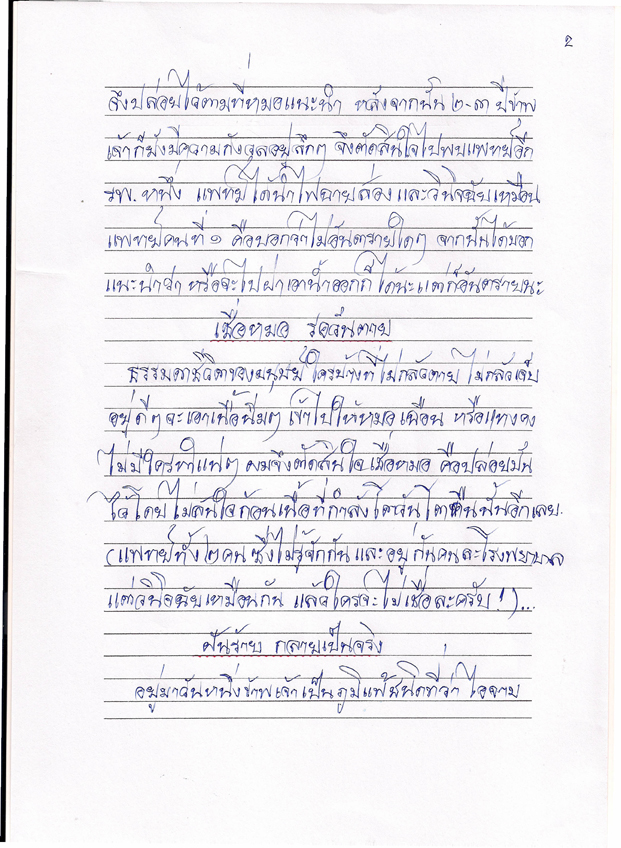 2
จึงปล่อยไว้ตามที่หมอแนะนำ หลังจากนั้น ๒-๓ ปีข้าพ
เจ้าก็ยังมีความกังวลอยู่ลึกๆ จึงตัดสินใจไปพบแพทย์อีก
รพ. หนึ่ง แพทย์ได้นำไฟฉายส่อง และวินิจฉัยเหมือน
แพทย์คนที่ ๑ คือบอกว่าไม่อันตรายใดๆ จากนั้นได้บอก
แนะนำว่า หรือจะไปผ่าเอาน้ำออกก็ได้นะแต่ก็อันตรายนะ
เชื่อหมอ รอวันตาย
ธรรมดาชีวิตของมนุษย์ ใครบ้างที่ไม่กลัวตาย ไม่กลัวเจ็บ
อยู่ดีๆจะเอาเนื้อนิ่มๆ เข้าไปให้หมอเฉือน หรือแทงคง
ไม่มีใครทำแน่ๆ ผมจึงตัดสินใจเชื่อหมอ คือปล่อยมัน
ไว้โดยไม่สนใจก้อนเนื้อที่กำลังโตวันโตคืนนั้นอีกเลย.
(แพทย์ทั้ง ๒ คน ซึ่งไม่รู้จักกัน และอยู่กันคนละโรงพยาบาล
แต่วินิจฉัยเหมือนกัน แล้วใครจะไม่เชื่อละครับ!)...
ฝันร้าย กลายเป็นจริง
อยู่มาวันหนึ่งข้าพเจ้าเป็นภูมิแพ้ชนิดที่ว่า ไอจาม